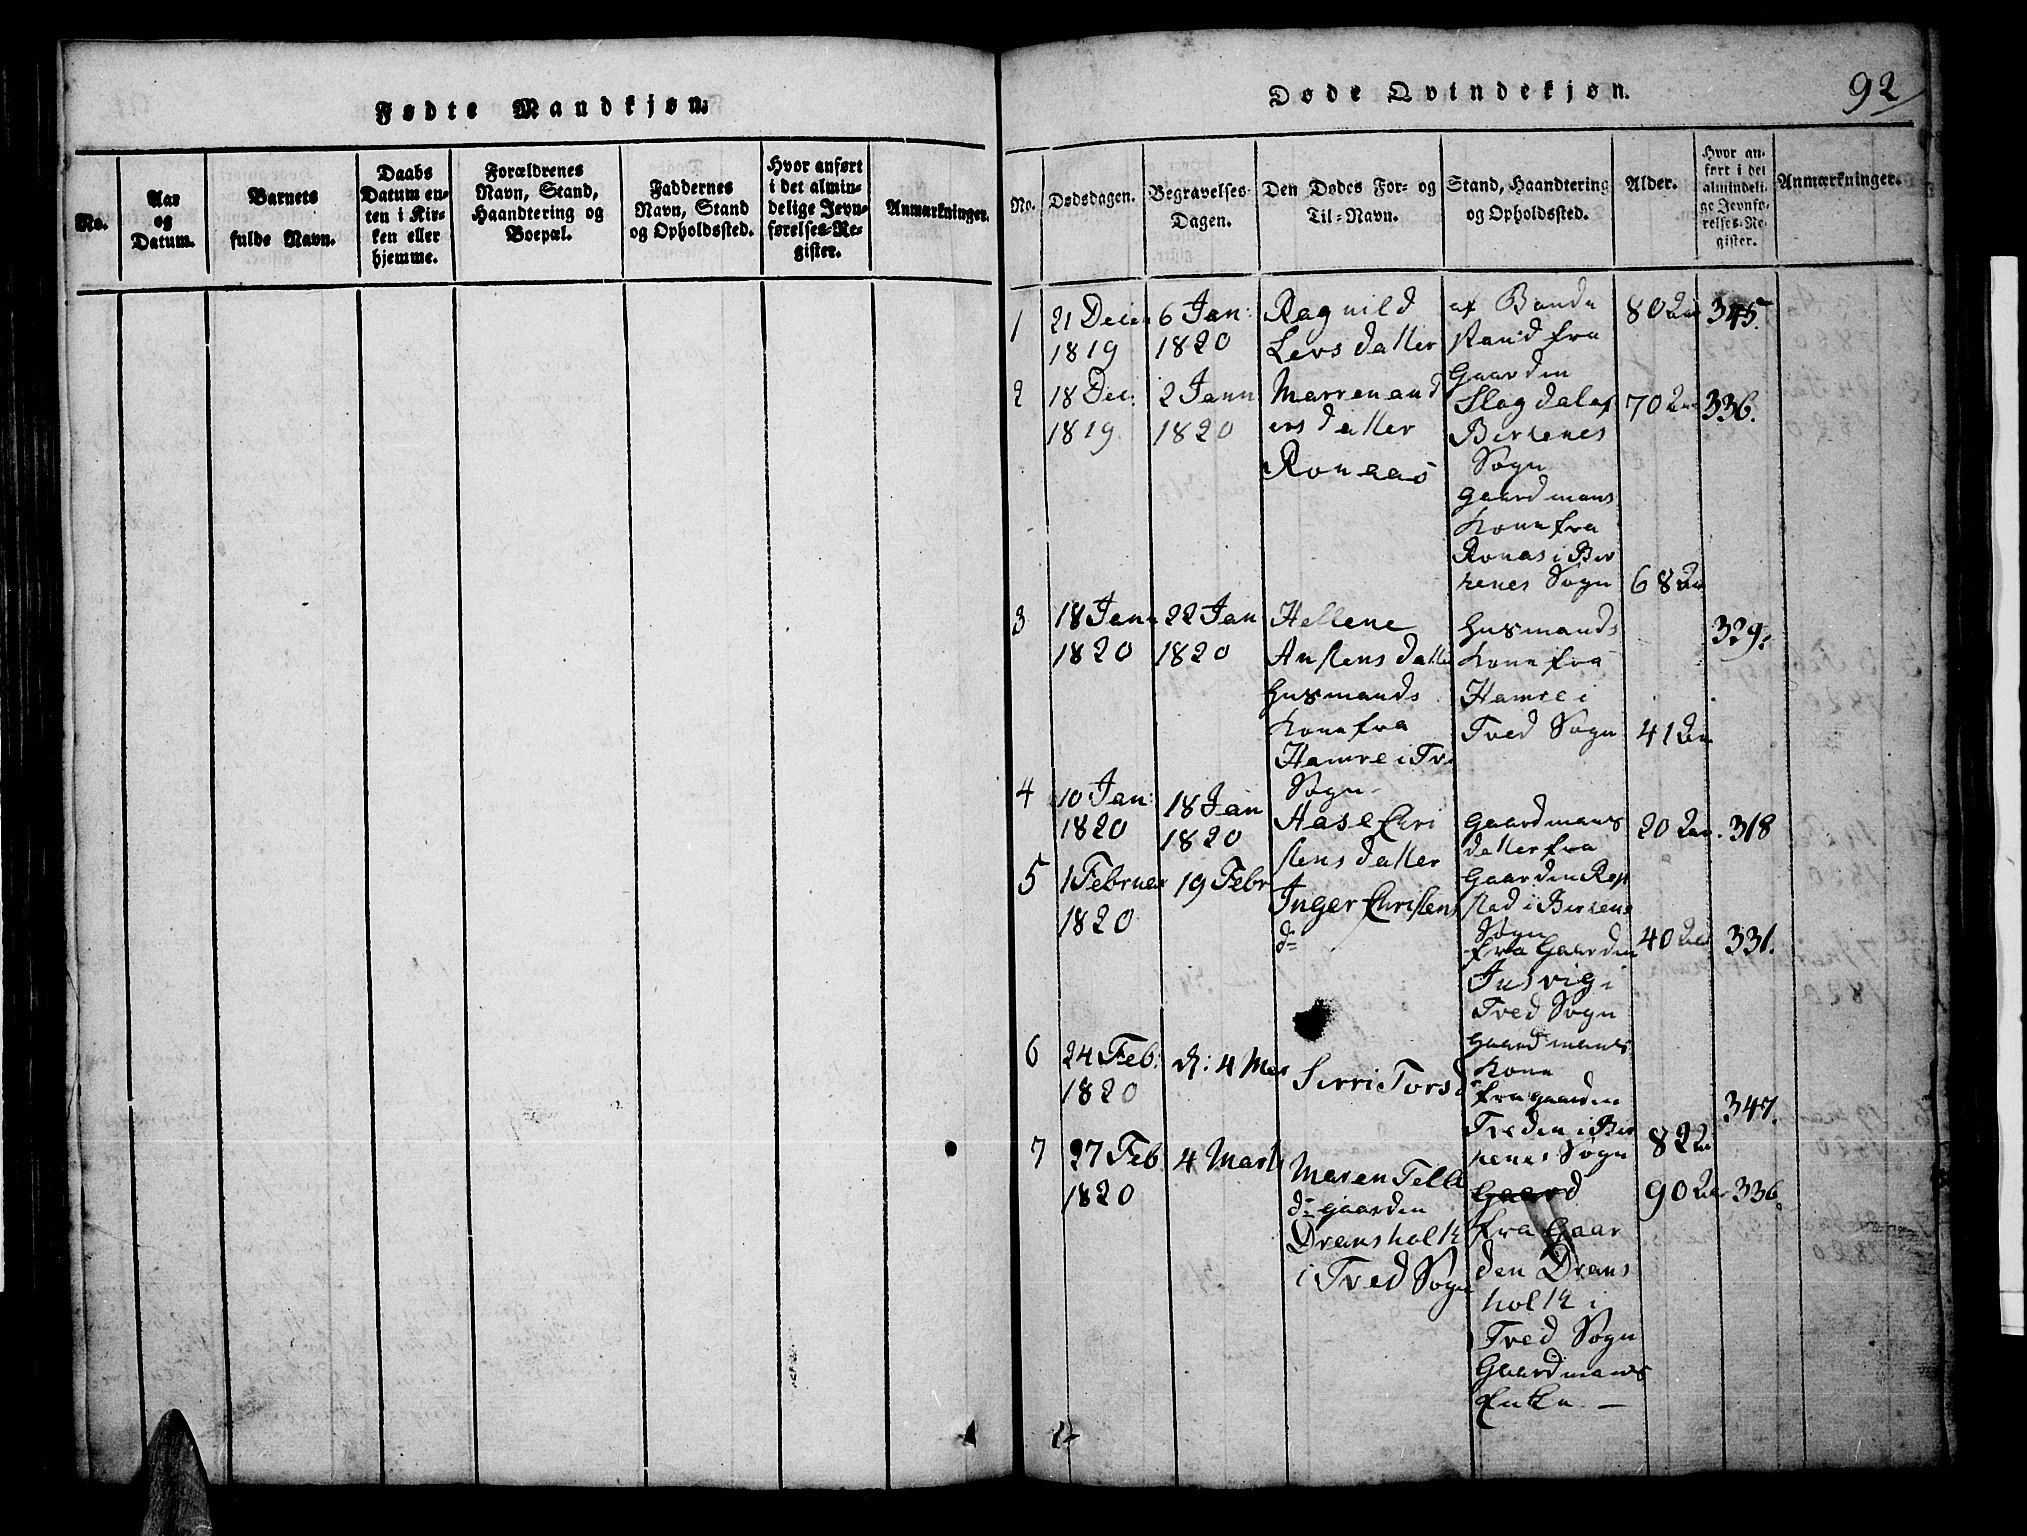 Fødte Mandkjøn.
No.
Aar og Datum.
Barnets fulde Navn.
Daabs Datum enten i Kirken eller hjemme.
Forældrenes Navn, Stand, Haandtering og Boepæl.
Faddernes Navn, Stand og Opholdssted.
Hvor anført i det almindelige Jevnførelses-Register.
Anmærkninger.
Døde Qvindekjøn.
92
No.
Dødsdagen.
Begravelses-Dagen.
Den Dødes For- og Til-Navn.
Stand, Haandtering og Opholdssted.
Alder.
Hvor anført i det almindelige Jevnførelses-Register.
Anmærkninger.
1
21 Decem
1819
6 Jan:
1820
Ragnild
Lersdatter
af Bonde
stand fra
Gaarden
80 Aar
345.
2
18 Dec:
1819
2 Jann
1820
Marrenand
ersdatter
Ronaas
Slogdal af
Berkenes
Sogn
Gaardmans
Kone fra
Ronas i Ber
kenes Sogn
70 Aar
336.
68 Aar
3
18 Jann
1820
22 Jan
1820
Hellene
Anstensdatte
Husmands
Kone fra
Hamre i Tve
Sogn
Husmands
Kone fra
Hamre i
Tved Sogn
41 Aar
329.
4
10 Jan:
1820
18 Jan
1820
Aase Chri
stensdatter
Gaardmans
datter fra
Gaarden Rep
stad i Berkene
Sogn
20 Aar.
318
5
1 Februer
1820
19 Febr
Inger Christens
d=
fra Gaarden
Jusvig i
Tved Sogn
40 Aar
331.
6
24 Feb:
1820
d: 4 Mar
Serri Torsd
Gaardmans
Kone
fra gaarden
Treden i Ber
kenes Sogn
82 Aar
347.
7
27 Feb
1820
4 Marts
Maren Telle
d= gaarden
Dransholt
i Tved Sogn
Gaard
fra Gaar
den Drans
holt i
Tved Sogn
Gaardmans
Enke —
90 Aar
336.